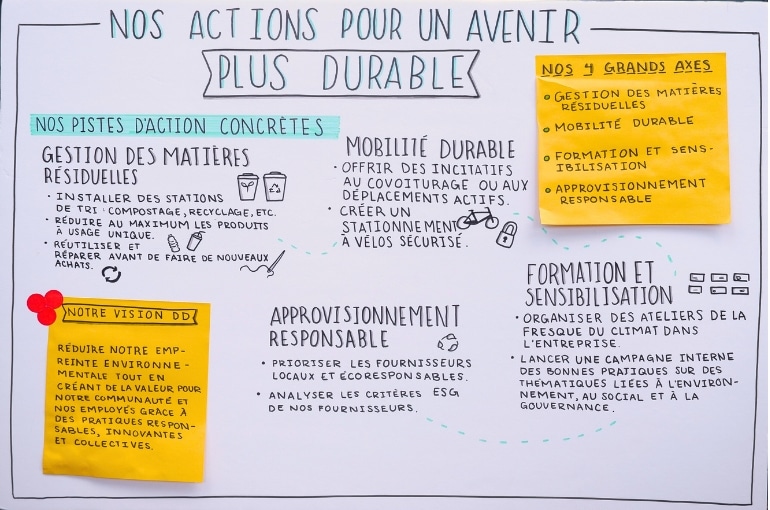 NOS ACTIONS POUR UN AVENIR
PLUS DURABLE
NOS 4 GRANDS AXES
GESTION DES MATIÈRES
RÉSIDUELLES
MOBILITÉ DURABLE
FORMATION ET SENS-
IBILISATION
APPROVISIONNEMENT
RESPONSABLE
NOS PISTES D'ACTION CONCRÈTES
GESTION DES MATIÈRES
RÉSIDUELLES
• INSTALLER DES STATIONS
DE TRI : COMPOSTAGE, RECYCLAGE, ETC.
• RÉDUIRE AU MAXIMUM LES PRODUITS
À USAGE UNIQUE.
• RÉUTILISER ET
RÉPARER AVANT DE FAIRE DE NOUVEAUX
ACHATS.
MOBILITÉ DURABLE
• OFFRIR DES INCITATIFS
AU COVOITURAGE OU AUX
DÉPLACEMENTS ACTIFS.
• CRÉER UN
STATIONNEMENT
À VÉLOS SÉCURISÉ.
FORMATION ET
SENSIBILISATION
• ORGANISER DES ATELIERS DE LA
FRESQUE DU CLIMAT DANS
L'ENTREPRISE.
• LANCER UNE CAMPAGNE INTERNE
DES BONNES PRATIQUES SUR DES
THÉMATIQUES LIÉES À L'ENVIRON-
NEMENT, AU SOCIAL ET À LA
GOUVERNANCE.
NOTRE VISION DD
RÉDUIRE NOTRE EMP-
REINTE ENVIRONNE-
MENTALE TOUT EN
CRÉANT DE LA VALEUR POUR
NOTRE COMMUNAUTÉ ET
NOS EMPLOYÉS GRÂCE À
DES PRATIQUES RESPON-
SABLES, INNOVANTES
ET COLLECTIVES.
APPROVISIONNEMENT
RESPONSABLE
• PRIORISER LES FOURNISSEURS
LOCAUX ET ÉCORESPONSABLES.
• ANALYSER LES CRITÈRES ESG
DE NOS FOURNISSEURS.